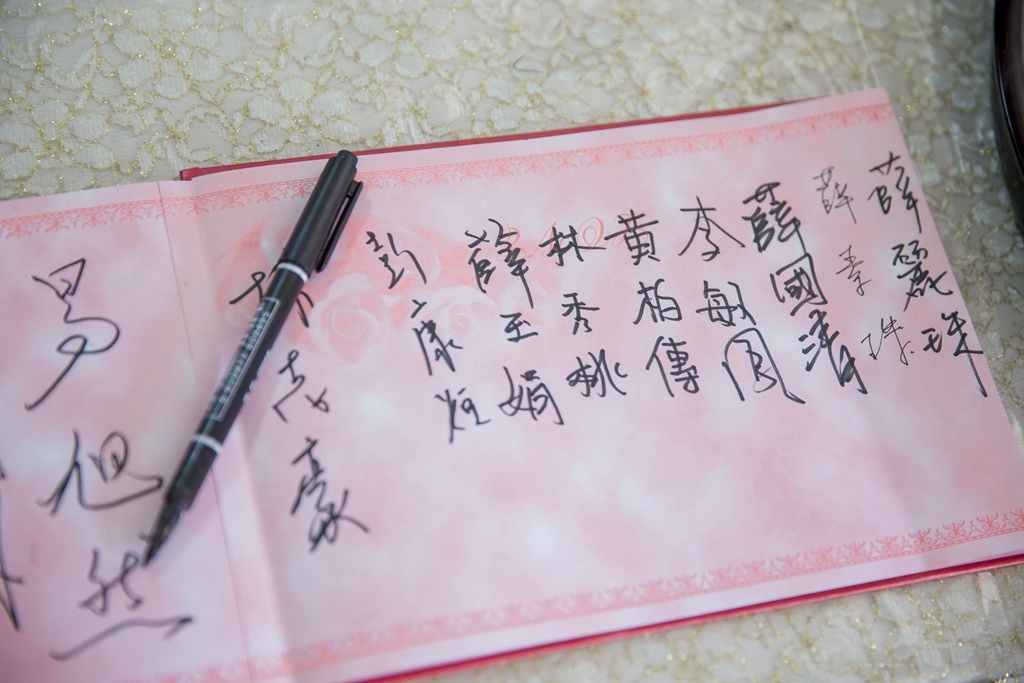 薛麗珠
薛素珠
薛國清
李敏鳳
黃柏傳
林秀桃
薛玉娟
彭康
志豪
易旭然